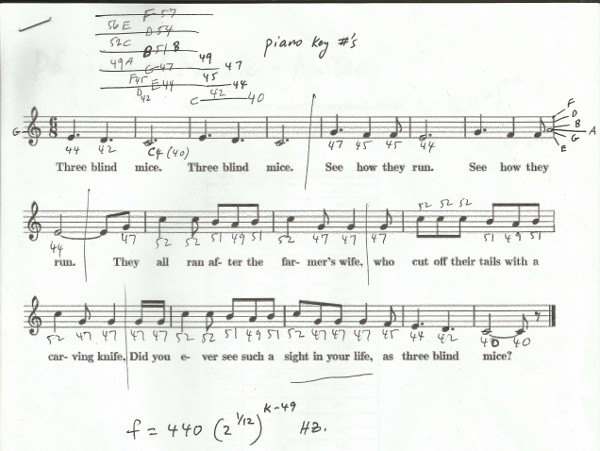 56 E F-57
D54
52C B51 B
49A G-47 49 47
F45 45
D42 E44 44
42
C 40
piano key #'s
F
D
B
G A
E
44 42 C4 (40) 47 45 45 44
Three blind mice. Three blind mice. See how they run. See how they
44 47 52 52 51 49 51 52 47 47 47 52 52 52 51 49 51
run. They all ran af- ter the far- mer's wife, who cut off their tails with a
52 47 47 47 47 52 52 51 49 51 52 47 47 47 45 44 42 40 40
car- ving knife, Did you e- ver see such a sight in your life, as three blind mice?
f = 440 (2^1/12)^K-49 Hz.